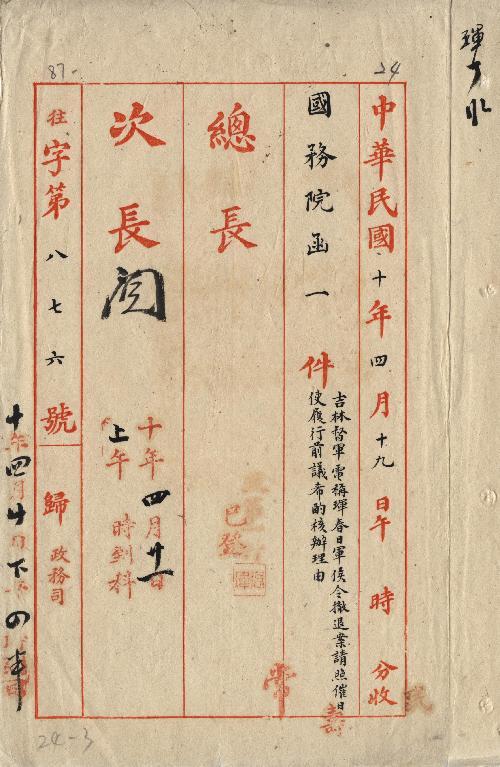 24
87-
中華民國十年四月十九日午時分收
國務院函一件
吉林督軍電稱琿春日軍俟令撤退案請照催日
使履行前議希酌核辦理由
總長
已登
次長
閱
十年四月廿一日
上午時到科
往字第八七六號歸政務司
十年四月廿日下四半
常
壽
24-3